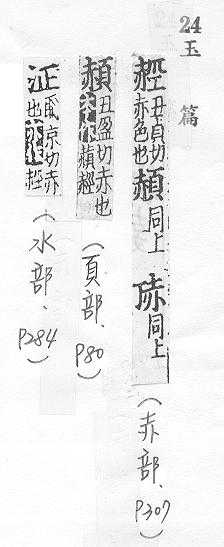 24
玉篇
䞓丑貞切赤色也赬同上 同上(赤部、P307)
頳丑盈切赤也 作赬䞓(頁部、P80)
泟丑京切赤也亦作䞓(水部、P284)